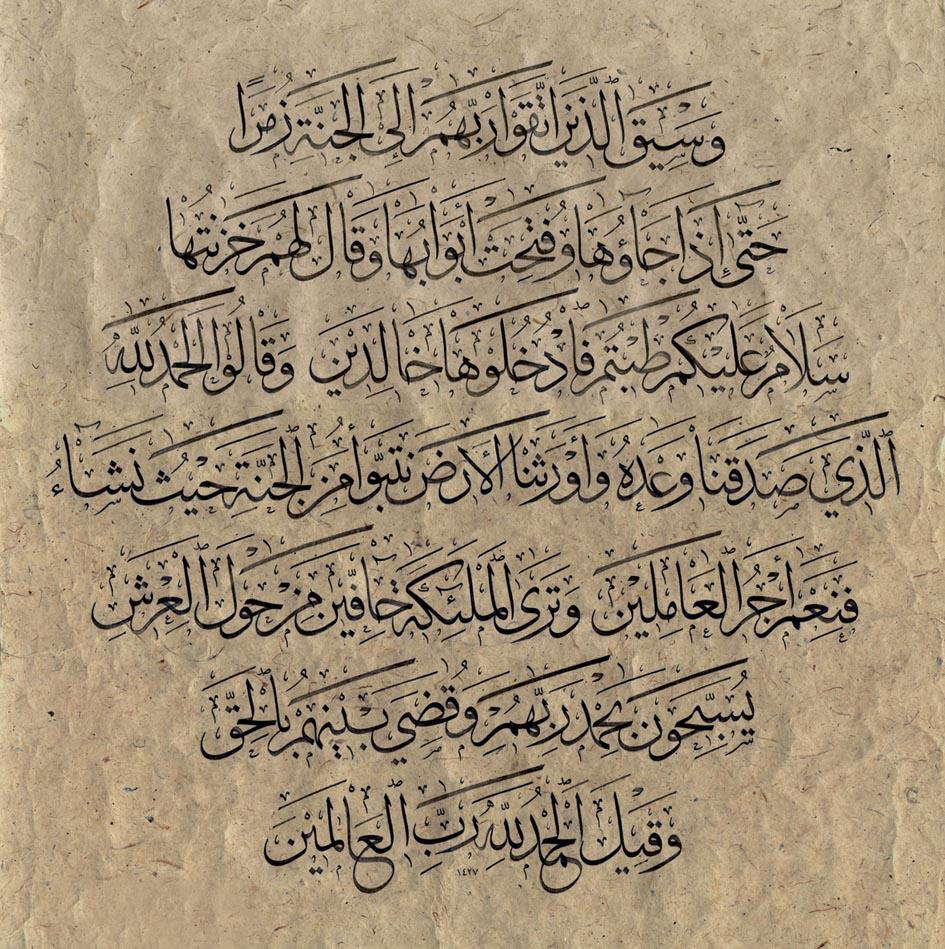 وَسِيقَ الَّذِينَ اتَّقَوْا رَبَّهُمْ إِلَى الْجَنَّةِ زُمَرًا
حَتَّى إِذَا جَاؤُوهَا وَفُتِحَتْ أَبْوَابُهَا وَقَالَ لَهُمْ خَزَنَتُهَا
سَلَامٌ عَلَيْكُمْ طِبْتُمْ فَادْخُلُوهَا خَالِدِينَ وَقَالُوا الْحَمْدُ لِلَّهِ
الَّذِي صَدَقَنَا وَعْدَهُ وَأَوْرَثَنَا الْأَرْضَ نَتَبَوَّأُ مِنَ الْجَنَّةِ حَيْثُ نَشَاءُ
فَنِعْمَ أَجْرُ الْعَامِلِينَ وَتَرَى الْمَلَئِكَةَ حَافِّينَ مِنْ حَوْلِ الْعَرْشِ
يُسَبِّحُونَ بِحَمْدِ رَبِّهِمْ وَقُضِيَ بَيْنَهُمْ بِالْحَقِّ
وَقِيلَ الْحَمْدُ لِلَّهِ رَبِّ الْعَالَمِينَ
١٤٢٧